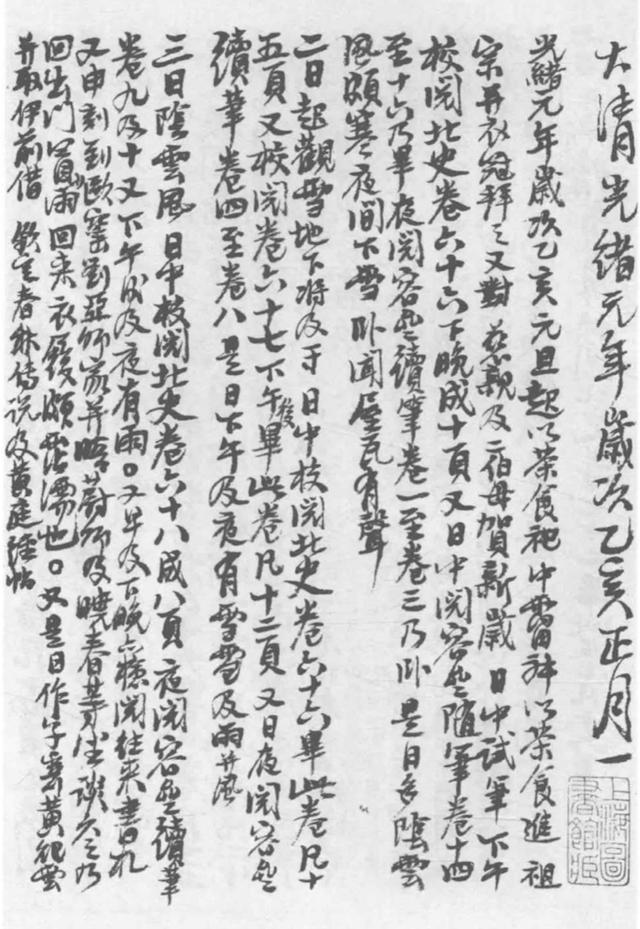 大清光緒元年歲次乙亥正月一
光緒元年歲次乙亥元旦起以茶食祀中霤神以茶食進 祖
宗并衣冠拜之又對 慈親及二伯母賀新歲 日中試筆 下午
校閱北史卷六十六下晚成十頁又日中閱容齋隨筆卷十四
至十六乃畢夜閱容齋續筆卷一至卷三乃卧 是日多陰雲
風頗寒夜間下雪 卧聞屋瓦有聲
二日起觀雪地下將及寸 日中校閱北史卷六十六畢此卷凡十
五頁又校閱卷六十七下午後畢此卷凡十二頁 又日夜閱容齋
續筆卷四至卷八 是日下午及夜有雪雹及雨并風
三日陰雲風 日中校閱北史卷六十八成八頁 夜閱容齋續筆
卷九及十 又下午風及夜有雨。又早及下晚亦檢閱往來書札
又申刻到歐窰劉亞師家并晤蔚師及曉春等坐談久之乃
回出門冒雨回來衣履頗霑濡也。又是日作字寄黃祀雲
并取伊前借 欽定春秋傳說及黃庭經帖
上海圖
書館藏